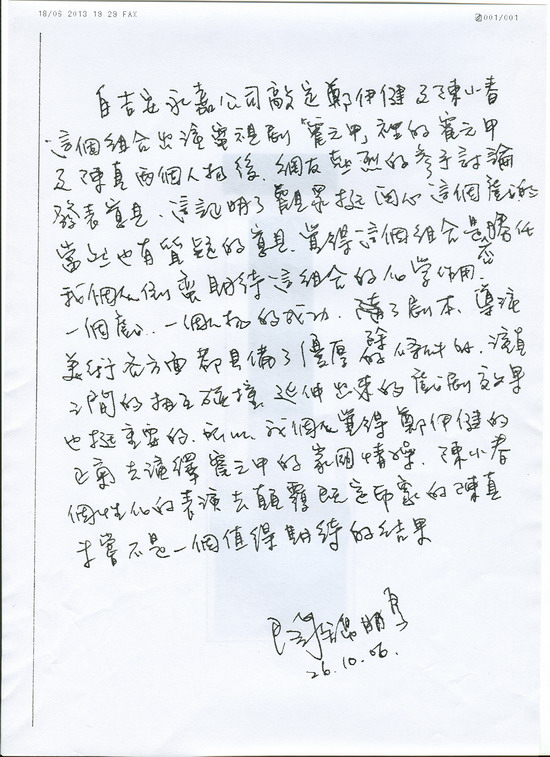 18/06 2013 19 29 FAX
001/001
自吉安永嘉公司敲定鄭伊健及陳小春
這個組合出演電視劇「霍元甲」裡的霍元甲
及陳真兩個人物後、網友熱烈的參予討論
發表意見、這說明了觀眾挺関心這個戲的
當然也有質疑的意見、覺得這個組合是否勝任
我個人倒蠻期待這組合的化学作用、
一個戲、一個人物的成功、除了劇本、導演
美術各方面都具備了優厚的條件外、演員
之間的相互碰撞、延伸出來的戲劇效果
也挺重要的、所以、我個人覺得鄭伊健的
正氣去演繹霍元甲的家國情操、陳小春
個性化的表演去顛覆既定印象的陳真
未嘗不是一個值得期待的結果
26.10.06.